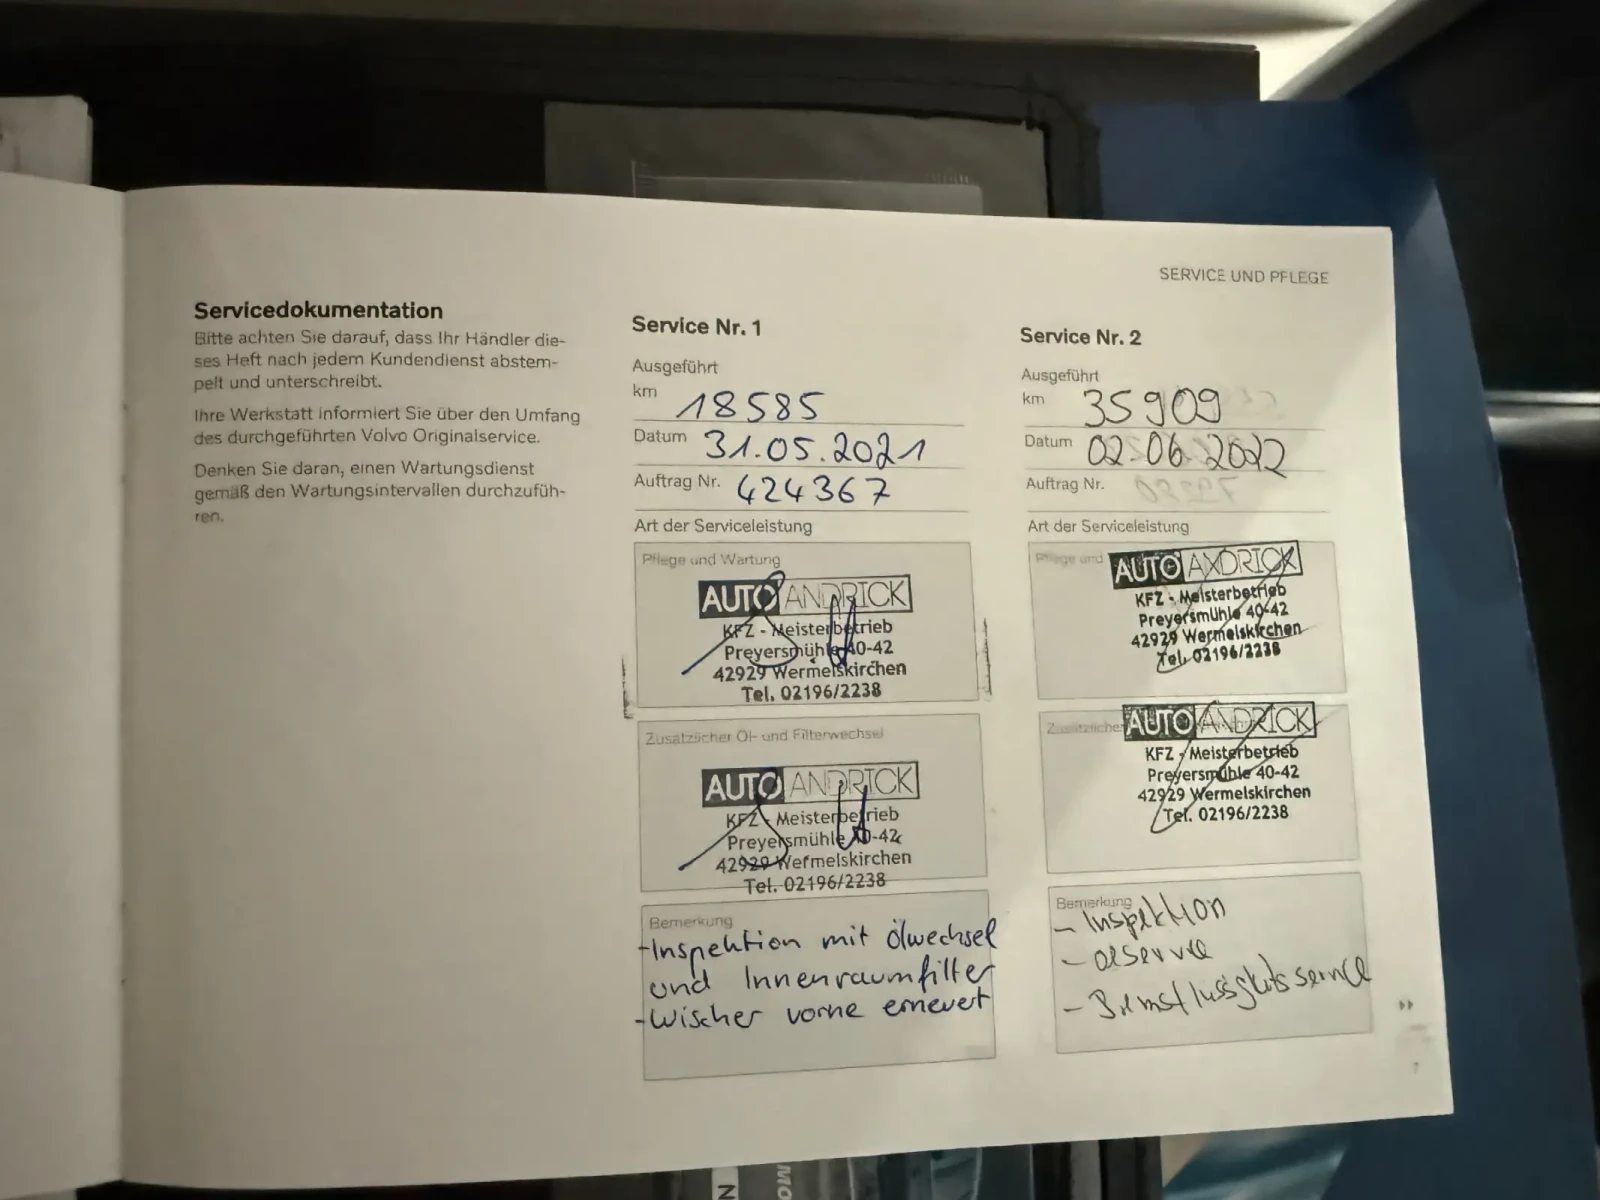 SERVICE UND PFLEGE
Servicedokumentation
Bitte achten Sie darauf, dass Ihr Händler die-
ses Heft nach jedem Kundendienst abstem-
pelt und unterschreibt.
Ihre Werkstatt informiert Sie über den Umfang
des durchgeführten Volvo Originalservice.
Denken Sie daran, einen Wartungsdienst
gemäß den Wartungsintervallen durchzufüh-
ren.
Service Nr. 1
Ausgeführt
km 18585
Datum 31.05.2021
Auftrag Nr. 424367
Art der Serviceleistung
Pflege und Wartung
AUTO ANDRICK
KFZ - Meisterbetrieb
Preyersmühle 40-42
42929 Wermelskirchen
Tel. 02196/2238
Zusätzlicher Öl- und Filterwechsel
AUTO ANDRICK
KFZ - Meisterbetrieb
Preyersmühle 40-42
42929 Wermelskirchen
Tel. 02196/2238
Bemerkung
-Inspektion mit Ölwechsel
und Innenraumfilter
-Wischer vorne erneuert
Service Nr. 2
Ausgeführt
km 35909
Datum 02.06.2022
Auftrag Nr.
Art der Serviceleistung
Pflege und
AUTO ANDRICK
KFZ - Meisterbetrieb
Preyersmühle 40-42
42929 Wermelskirchen
Tel. 02196/2238
Zusätzlicher
AUTO ANDRICK
KFZ - Meisterbetrieb
Preyersmühle 40-42
42929 Wermelskirchen
Tel. 02196/2238
Bemerkung
- Inspektion
- Ölservice
- Bremsflüssigkeitsservice
7